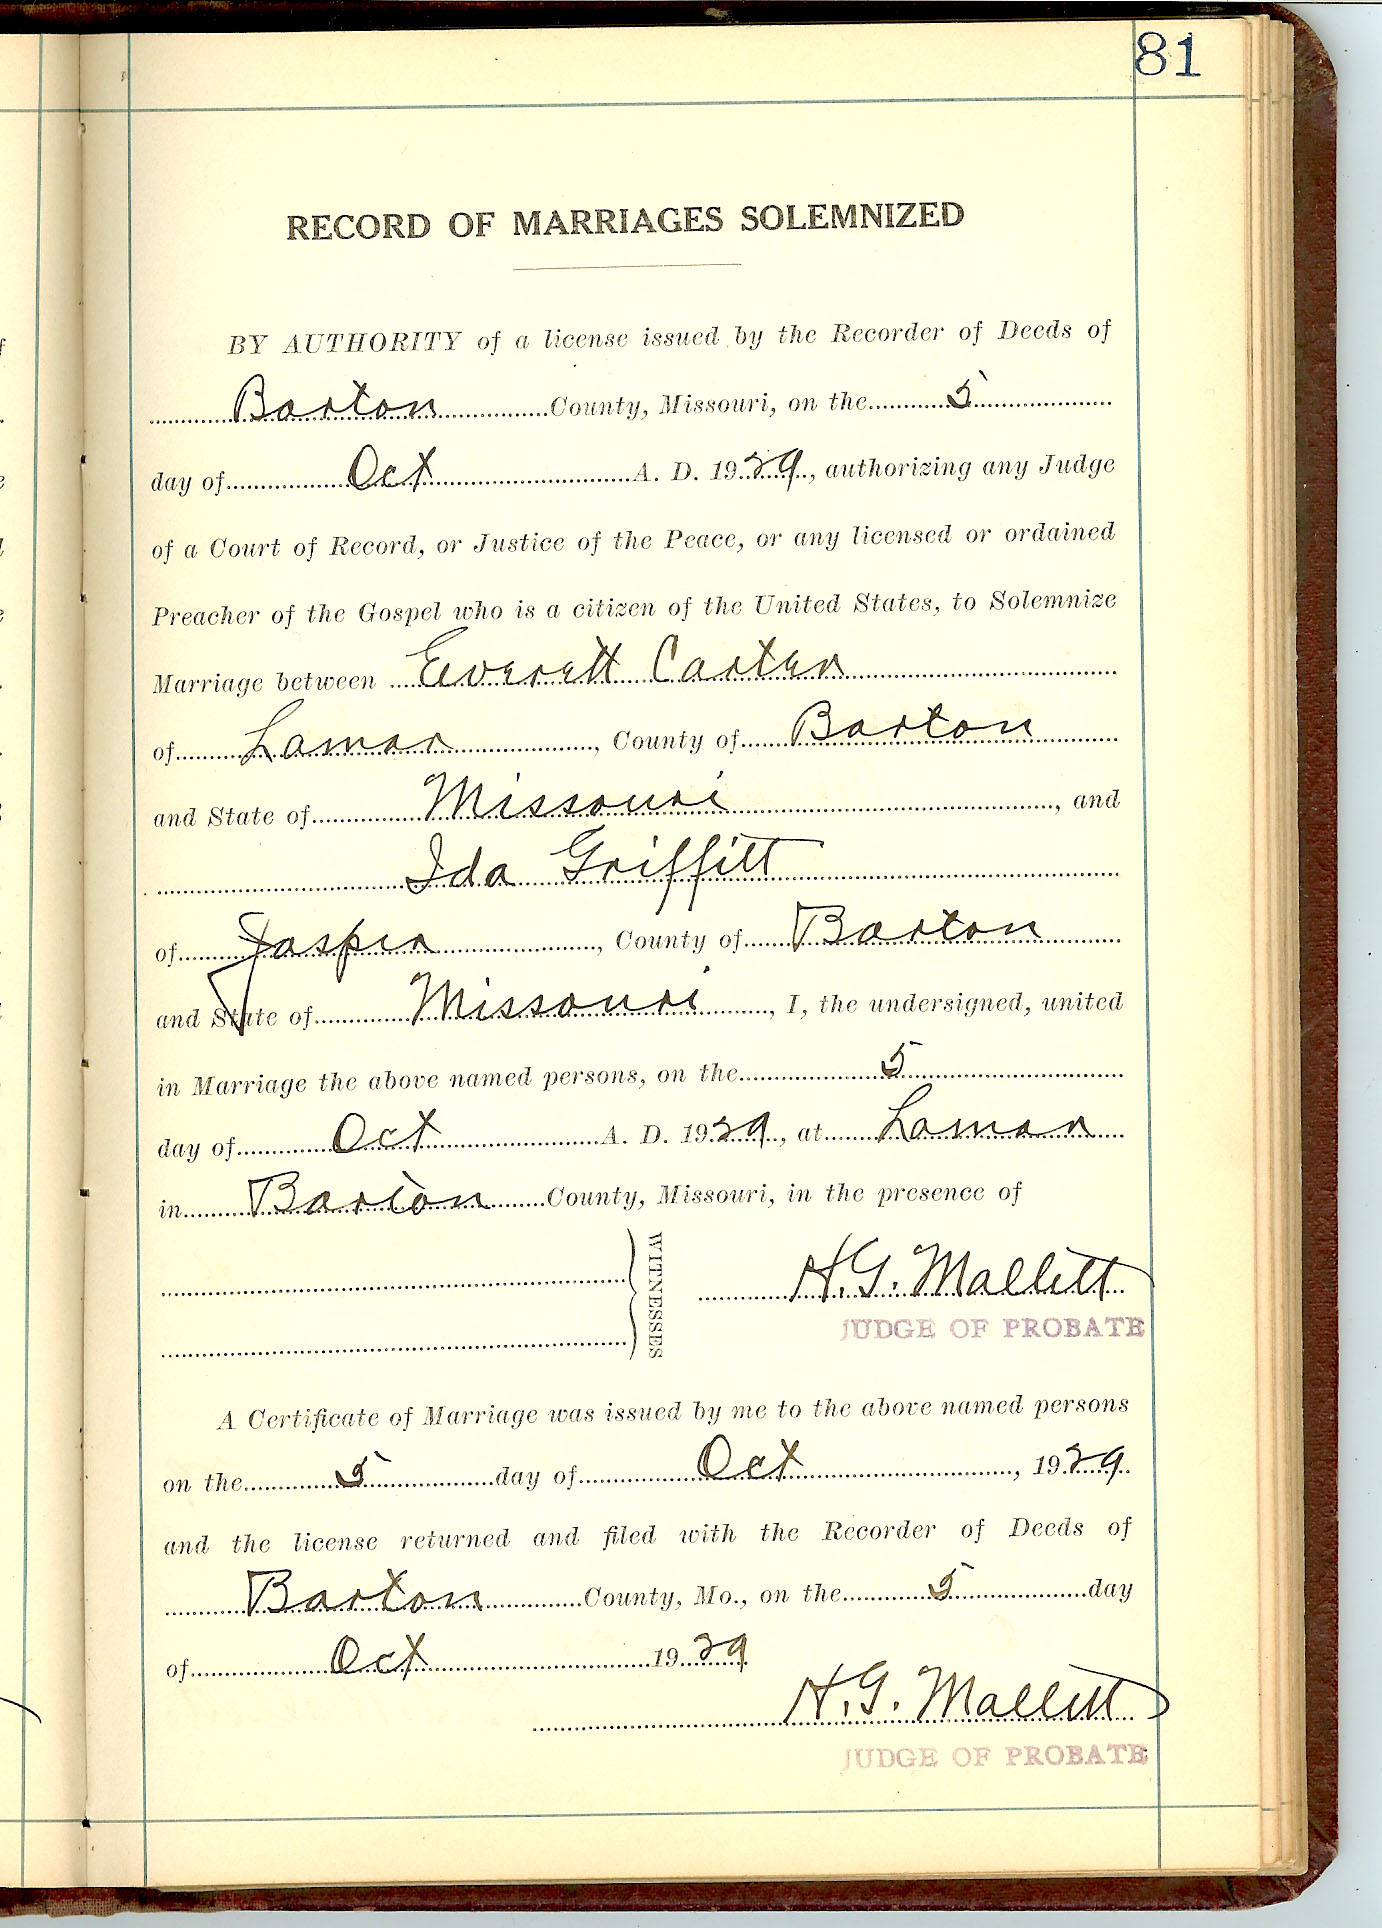 81
RECORD OF MARRIAGES SOLEMNIZED
BY AUTHORITY of a license issued by the Recorder of Deeds of
Barton County, Missouri, on the 5
day of Oct A. D. 1929, authorizing any Judge
of a Court of Record, or Justice of the Peace, or any licensed or ordained
Preacher of the Gospel who is a citizen of the United States, to Solemnize
Marriage between Everett Carter
of Lamar, County of Barton
and State of Missouri, and
Ida Griffitt
of Jasper, County of Barton
and State of Missouri, I, the undersigned, united
in Marriage the above named persons, on the 5
day of Oct A. D. 1929, at Lamar
in Barton County, Missouri, in the presence of
WITNESSES
H. G. Mallett
JUDGE OF PROBATE
A Certificate of Marriage was issued by me to the above named persons
on the 5 day of Oct, 1929
and the license returned and filed with the Recorder of Deeds of
Barton County, Mo., on the 5 day
of Oct 1929
H. G. Mallett
JUDGE OF PROBATE